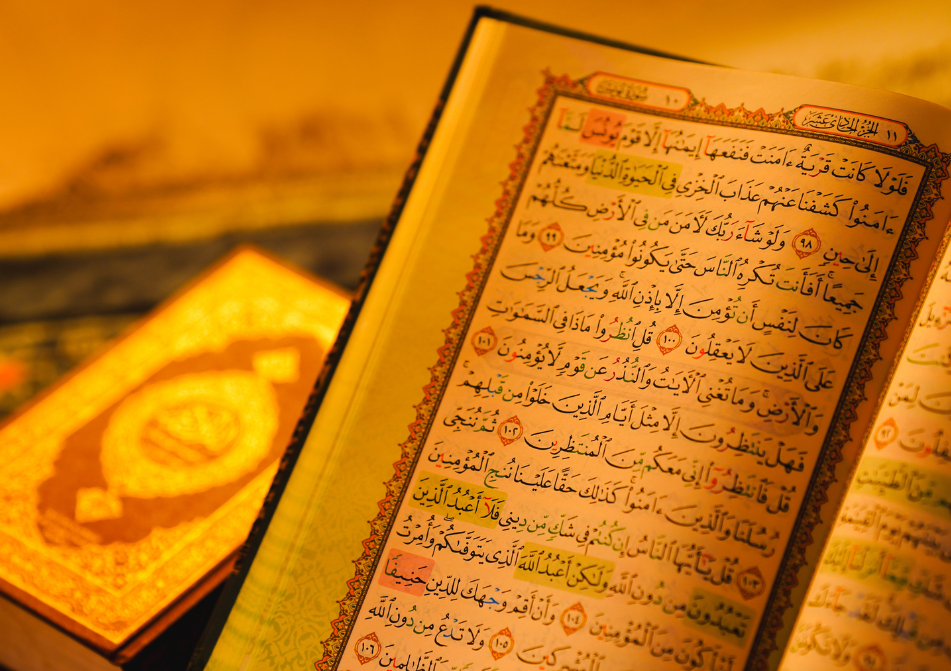 سورة يونس ١٠
الجزء الحادي عشر ١١
فَلَوْلَا كَانَتْ قَرْيَةٌ ءَامَنَتْ فَنَفَعَهَآ إِيمَٰنُهَآ إِلَّا قَوْمَ يُونُسَ لَمَّآ
ءَامَنُوا۟ كَشَفْنَا عَنْهُمْ عَذَابَ ٱلْخِزْىِ فِى ٱلْحَيَوٰةِ ٱلدُّنْيَا وَمَتَّعْنَٰهُمْ
إِلَىٰ حِينٍ ٩٨ وَلَوْ شَآءَ رَبُّكَ لَءَامَنَ مَن فِى ٱلْأَرْضِ كُلُّهُمْ
جَمِيعًا ۚ أَفَأَنتَ تُكْرِهُ ٱلنَّاسَ حَتَّىٰ يَكُونُوا۟ مُؤْمِنِينَ ٩٩ وَمَا
كَانَ لِنَفْسٍ أَن تُؤْمِنَ إِلَّا بِإِذْنِ ٱللَّهِ ۚ وَيَجْعَلُ ٱلرِّجْسَ
عَلَى ٱلَّذِينَ لَا يَعْقِلُونَ ١٠٠ قُلِ ٱنظُرُوا۟ مَاذَا فِى ٱلسَّمَٰوَٰتِ
وَٱلْأَرْضِ ۚ وَمَا تُغْنِى ٱلْءَايَٰتُ وَٱلنُّذُرُ عَن قَوْمٍ لَّا يُؤْمِنُونَ ١٠١
فَهَلْ يَنتَظِرُونَ إِلَّا مِثْلَ أَيَّامِ ٱلَّذِينَ خَلَوْا۟ مِن قَبْلِهِمْ ۚ
قُلْ فَٱنتَظِرُوٓا۟ إِنِّى مَعَكُم مِّنَ ٱلْمُنتَظِرِينَ ١٠٢ ثُمَّ نُنَجِّى
رُسُلَنَا وَٱلَّذِينَ ءَامَنُوا۟ ۚ كَذَٰلِكَ حَقًّا عَلَيْنَا نُنجِ ٱلْمُؤْمِنِينَ
١٠٣ قُلْ يَٰٓأَيُّهَا ٱلنَّاسُ إِن كُنتُمْ فِى شَكٍّ مِّن دِينِى فَلَآ أَعْبُدُ ٱلَّذِينَ
تَعْبُدُونَ مِن دُونِ ٱللَّهِ وَلَٰكِنْ أَعْبُدُ ٱللَّهَ ٱلَّذِى يَتَوَفَّىٰكُمْ ۖ وَأُمِرْتُ
أَنْ أَكُونَ مِنَ ٱلْمُؤْمِنِينَ ١٠٤ وَأَنْ أَقِمْ وَجْهَكَ لِلدِّينِ حَنِيفًا
ٱلْمُشْرِكِينَ ١٠٥ وَلَا تَدْعُ مِن دُونِ ٱللَّهِ
ٱلظَّٰلِمِينَ ١٠٦